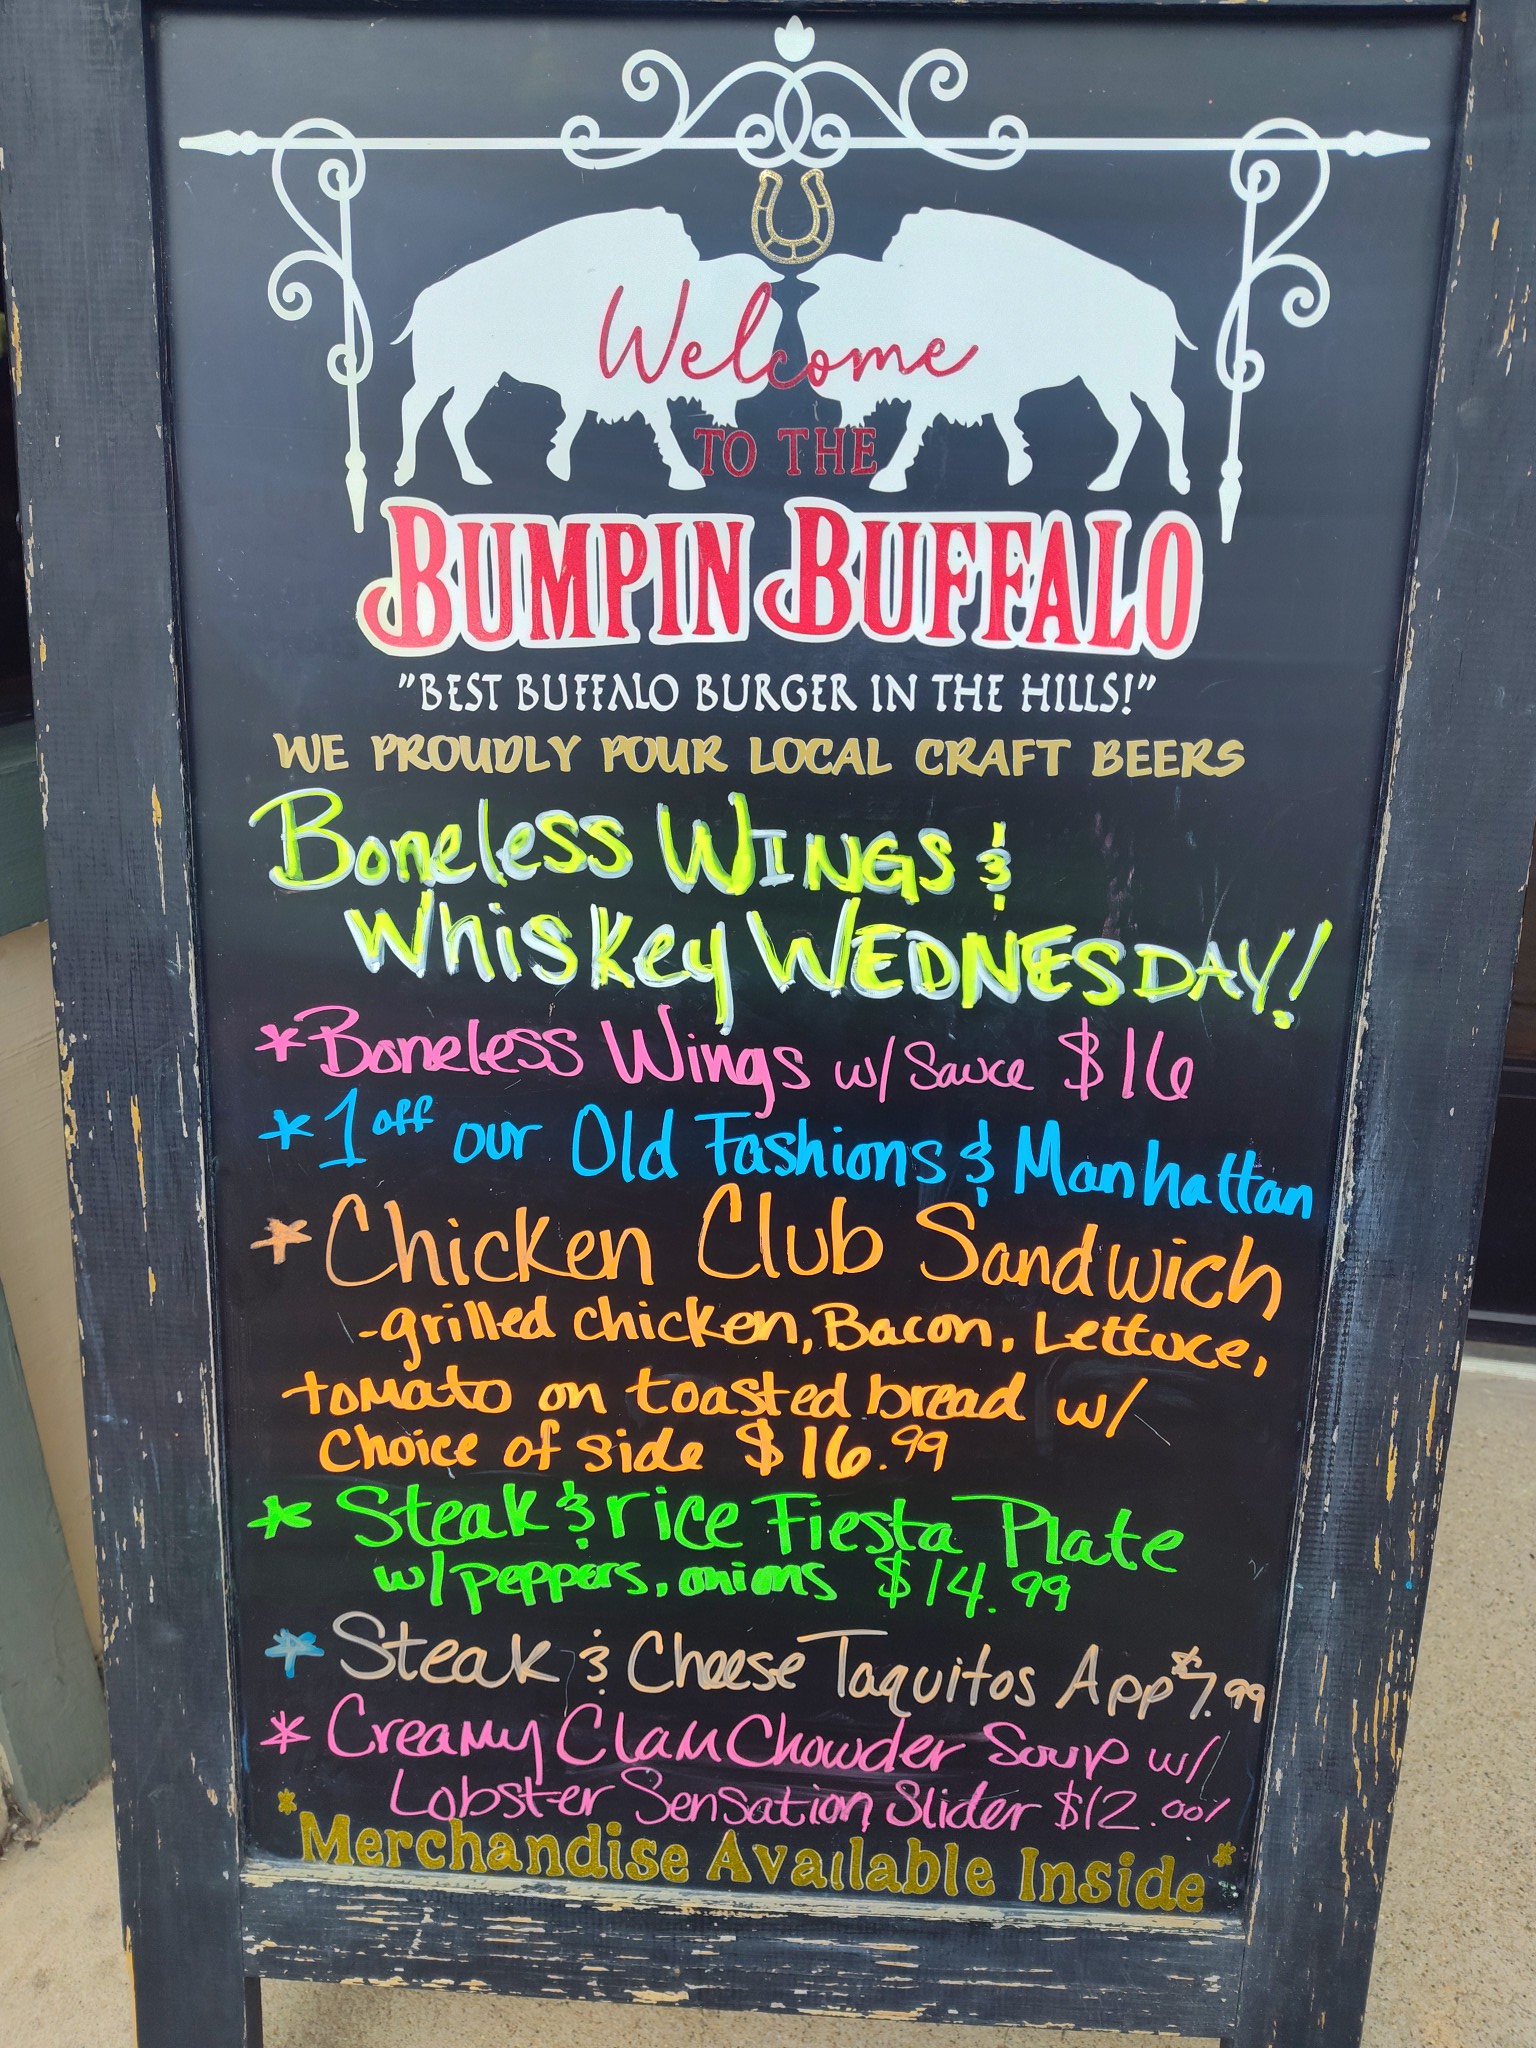 Welcome
TO THE
BUMPIN BUFFALO
"BEST BUFFALO BURGER IN THE HILLS!"
WE PROUDLY POUR LOCAL CRAFT BEERS
Boneless WINGS &
Whiskey WEDNESDAY!
*Boneless Wings w/ Sauce $16
*1 off our Old Fashions & Manhattan
* Chicken Club Sandwich
-grilled chicken, Bacon, Lettuce,
tomato on toasted bread w/
Choice of side $16.99
* Steak & rice Fiesta Plate
w/ peppers, onions $14.99
* Steak & Cheese Taquitos App $7.99
* Creamy Clam Chowder Soup w/
Lobster Sensation Slider $12.00
*Merchandise Available Inside*